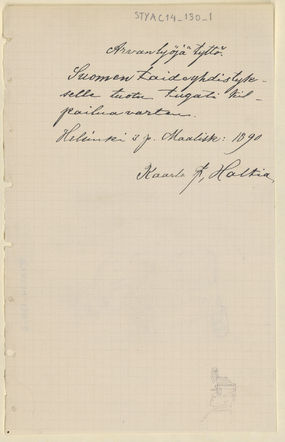 STYAC14-130-1
Arvanlyöjä tyttö.
Suomen Taideyhdistyk-
selle tuotu
pailua varten.
Helsinki 3 p. Maalisk: 1890
Kaarlo Haltia.